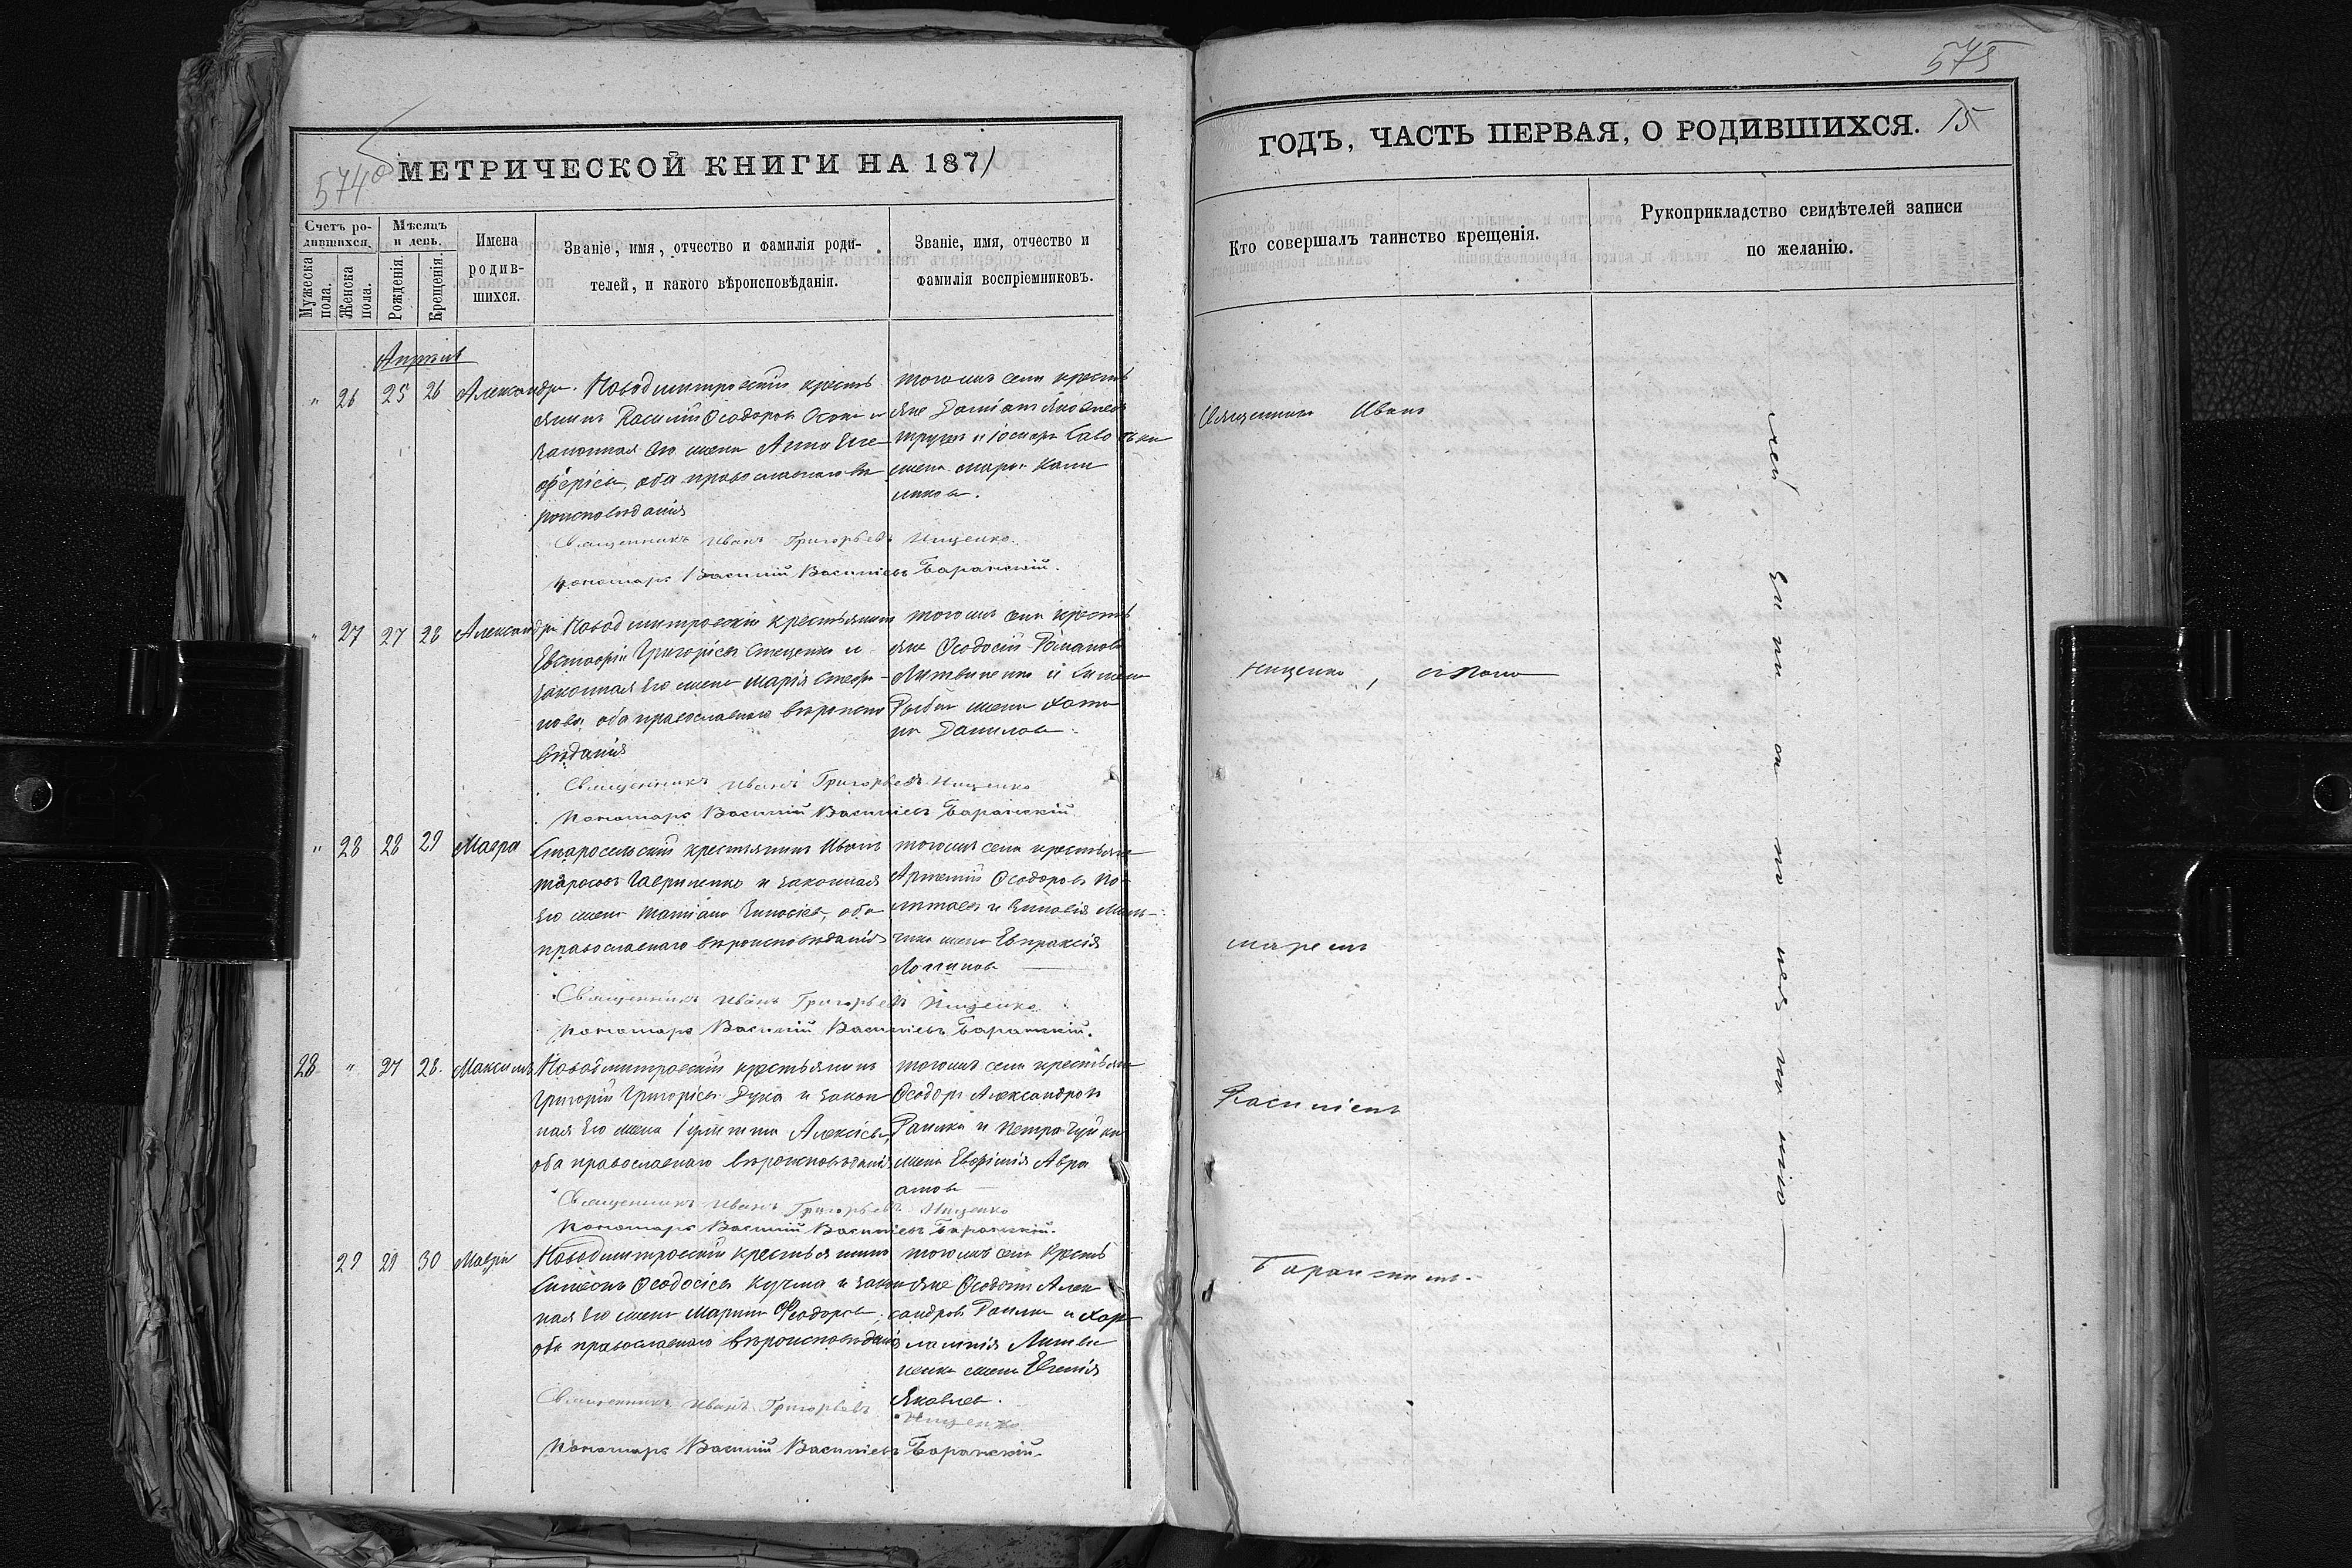 574 об
МЕТРИЧЕСКОЙ КНИГИ НА 1871
Счетъ ро-
дившихся.
Мѣсяцъ
и день.
Мужеска
пола.
Женска
пола.
Рожденія.
Крещенія.
Имена
родив-
шихся.
Званіе, имя, отчество и фамилія роди-
телей, и какого вѣроисповѣданія.
Званіе, имя, отчество и
фамилія воспріемниковъ.
Апрѣль
" 26 25 26 Александра. Новодмитровскій кресть
янинъ Василій Ѳеодоровъ и
законная его жена Анна Евге-
оба православнаго вѣ
роисповѣданія
тогожъ села кресть
яне Даміанъ Яковлевъ
жена Марія
Священникъ Иванъ Григорьевъ Ищенко.
Пономарь Василій Василіевъ Баранскій.
" 27 27 28 Александра Новодмитровскій крестьянинъ
Евстафій Григоріевъ Стеценко и
законная его жена Марія Стефа-
нова, оба православнаго вѣроиспо
вѣданія
тогожъ села кресть
яне Ѳеодосій Романовъ
Литвиненко и
жена
Данилова.
Священникъ Иванъ Григорьевъ Ищенко
Пономарь Василій Василіевъ Баранскій
" 28 28 29 Мавра Старосельскій крестьянинъ Иванъ
Тарасовъ Гавриленко и законная
его жена Татіана оба
православнаго вѣроисповѣданія
тогожъ села крестьяне
Артемій Ѳеодоровъ По-
лтавецъ и Зиновія Мель-
ника жена Евпраксія
Логгинова
Священникъ Иванъ Григорьевъ Ищенко
Пономарь Василій Василіевъ Баранскій.
28 " 27 28. Максимъ Новодмитровскій крестьянинъ
Григорій Григоріевъ Дука и закон
ная его жена Іулитта Алексіева,
оба православнаго вѣроисповѣданія
тогожъ села крестьяне
Ѳеодоръ Александровъ
и Петра Чуйка
жена Евфимія Авра
амова
Священникъ Иванъ Григорьевъ Ищенко
Пономарь Василій Василіевъ Баранскій.
29 29 30 Мавра Новодмитровскій крестьянинъ
Симеонъ Ѳеодосіевъ Кучма и закон
ная его жена Марина Ѳеодорова,
оба православнаго вѣроисповѣданія
тогожъ села кресть
яне Ѳеодотъ Алек
сандровъ и Хар
лампія Литви
ненка жена Евгенія
Яковлева.
Священникъ Иванъ Григорьевъ Ищенко
Пономарь Василій Василіевъ Баранскій.
575
ГОДЪ, ЧАСТЬ ПЕРВАЯ, О РОДИВШИХСЯ. 15
Кто совершалъ таинство крещенія.
Рукоприкладство свидѣтелей записи
по желанію.
Священникъ Иванъ
Ищенко, съ Поно
маремъ
Василіемъ
Баранскимъ.